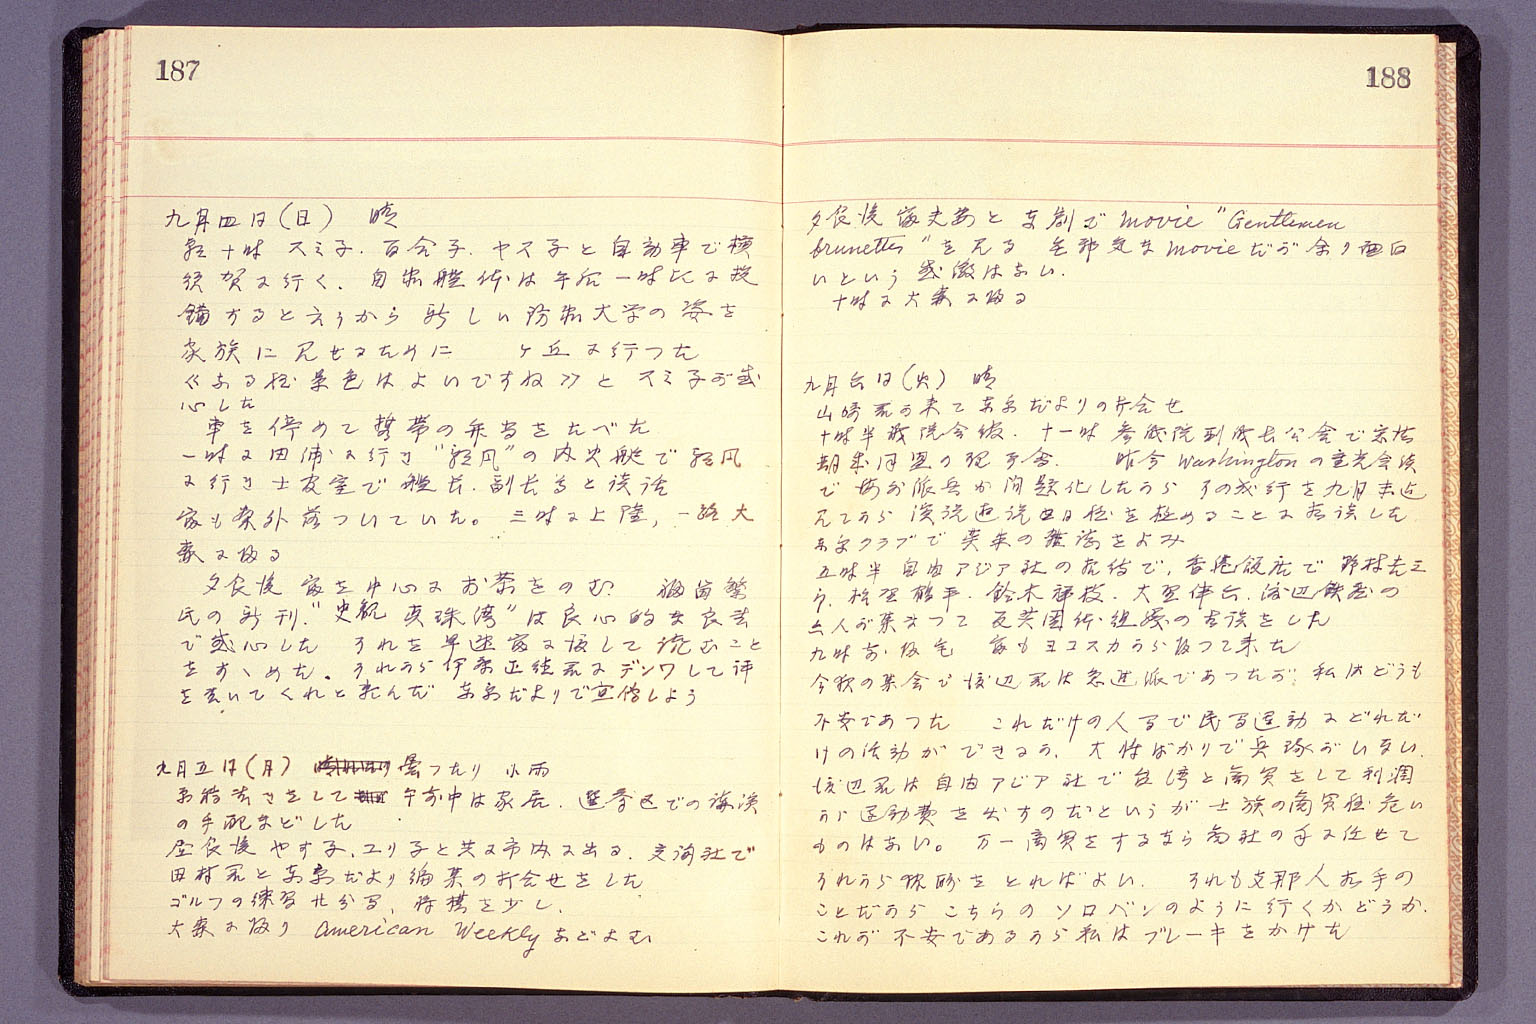 187
九月四日(日) 晴
朝十時 スミ子.百合子.ヤス子と自動車で横
須賀に行く. 自衛艦 は午后一時 に投
錨するというから新しい防衛大学の姿を
家族に見せるために ヶ丘に行つた
《ある程景色はよいですね》とスミ子が感
心した
車を停めて携帯の弁当をたべた
一時に田浦に行き"朝風"の内火艇で朝風
に行き士官室で艦長.副長等と談話
案外落ついていた。三時に上陸,一路大
森に帰る
夕食後 を中心にお茶をのむ 福留繁
氏の新刊."史観真珠湾"は良心的な良書
で感心した それを早速 に渡して読むこと
をすゝめた. それから伊藤正徳君にデンワして評
を書いてくれと頼んだ だよりで宣伝しよう
九月五日(月) 曇つたり 小雨
書きをして 午前中は家居. 選挙区での講演
の手配などした
昼食後 やす子,ユリ子と共に市内に出る. 交詢社で
田村君と だより編集の打合せをした
ゴルフの練習 , 将棋を少し.
大森に帰り American Weeklyなどよむ
188
夕食後 夫婦と東劇でmovie "Gentlemen
brunettes"を見る 無邪気なmovieだが余り面白
いという感激はない.
十時に大森に帰る
九月六日(火) 晴
山崎君が来て だよりの打合せ
十時半 , 十一時 参議院副議長公舎で
期 同盟の 昨今Washingtonの重光会談
で海外派兵が問題化したから その成行を九月末迄
見てから演説 日程を極めることに相談した
クラブで英米の雑誌をよみ
五時半 自由アジア社の招待で,香港飯店で 野村吉三
郎. 松野鶴平. 鈴木 . 大 . 渡辺銕蔵の
六人が集まつて 反共団体組織の相談をした
九時前 帰宅 もヨコスカから帰つて来た
今夜の集会で渡辺君は急進派であつたが,私はどうも
不安であつた これだけの人 で民 運動にどれだ
けの活動ができるか, 大将ばかりで兵隊がいない.
渡辺君は自由アジア社で台湾と商買をして利潤
から運動費を出すのだというが士族の商買程危い
ものはない。 万一商買をするなら商社の手に任せて
それから をとればよい. それも支那人相手の
ことだからこちらのソロバンのように行くかどうか.
これが不安であるから私はブレーキをかけた